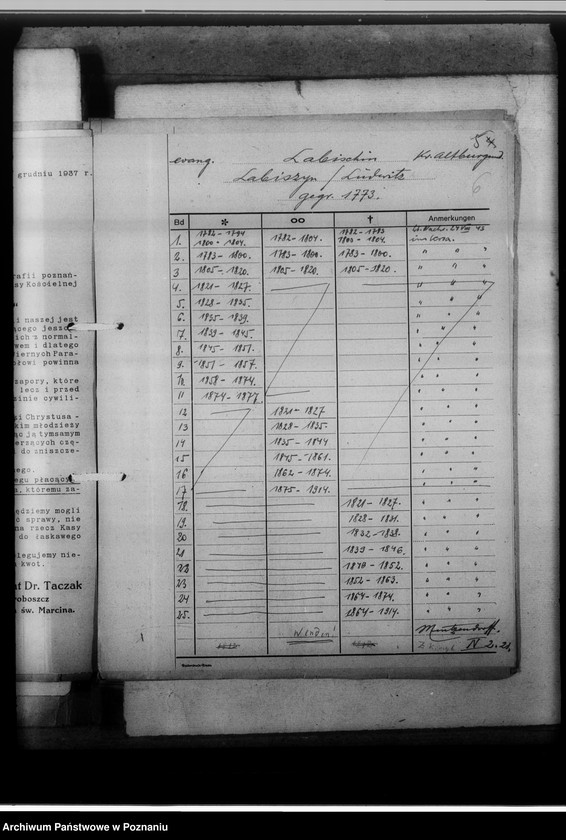 grudniu 1937 r.
rafii poznań-
sy Kościelnej
i naszej jest
ącego jeszcze
ich z normal-
wem i dlatego
iernych Para-
ołowi powinna
zapory, które
lecz i przed
sinie cywili-
gi Chrystusa -
kim młodzieży
ąc ją tymsamym
ierzących czę-
do zniszcze-
nego.
egu płacący
, któremu za-
będziemy mogli
ć sprawy, nie
na rzecz Kasy
do łaskawego
legujemy nie-
kwot.
at Dr. Taczak
roboszcz
św. Marcina.
evang. Labischin Kr. Altburgund
Labiszyn / Lüdwitz
gegr. 1773.
6
Bd * ∞ † Anmerkungen
1. 1782-1794 1800-1804. 1782-1804. 1782-1783 1803-1804.
2. 1783-1800. 1783-1800. 1783-1800. " " "
3 1805-1820. 1805-1820. 1805-1820. " " "
4. 1821-1827. " " "
5. 1828-1835. " " "
6. 1835-1839. " " "
7. 1839-1845. " " "
8. 1845-1851. " " "
9. 1851-1857. " " "
10. 1858-1874. " " "
11 1874-1877. " " "
12 1821-1827. " " "
13 1828-1835. " " "
14 1835-1844 " " "
15 1845-1861. " " "
16 1862-1874. " " "
17 1875-1914. " " "
18. 1821-1827. " " "
19. 1828-1831. " " "
20 1832-1838. " " "
21 1839-1846. " " "
22 1848-1852. " " "
23 1852-1863. " " "
24 1864-1874. " " "
25. 1864-1914. " " "
Archiwum Państwowe w Poznaniu